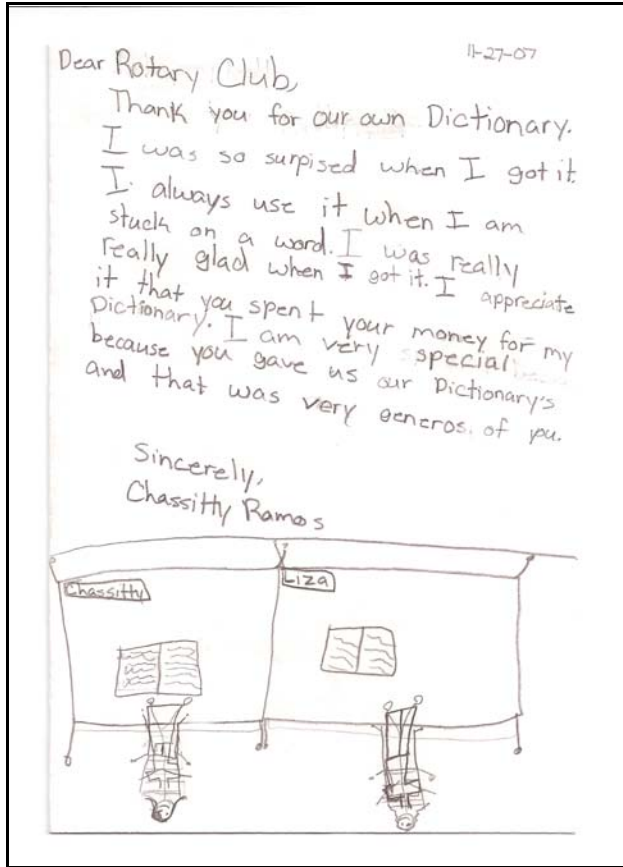 11-27-07
Dear Rotary Club,
Thank you for our own Dictionary.
I was so surpised when I got it.
I always use it when I am
stuck on a word. I was really
really glad when I got it. I appreciate
it that you spent your money for my
Dictionary. I am very special
because you gave us our Dictionary's
and that was very generos. of you.
Sincerely,
Chassitty Ramos
Chassitty
Liza